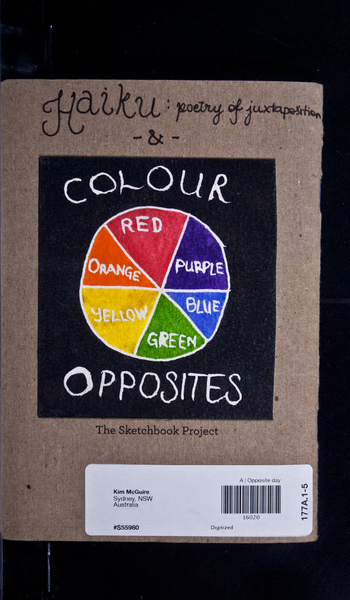 Haiku: poetry of juxtaposition
- & -
COLOUR
RED
ORANGE
PURPLE
YELLOW
BLUE
GREEN
OPPOSITES
The Sketchbook Project
A | Opposite day
Kim McGuire
Sydney, NSW
Australia
16020
#S55980
Digitized
177A.1-5